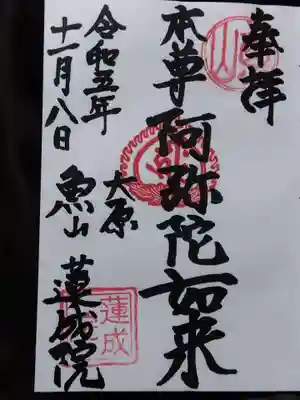 奉拝
本尊阿弥陀如来
大原
魚山 蓮成院
令和五年
十一月八日
蓮成